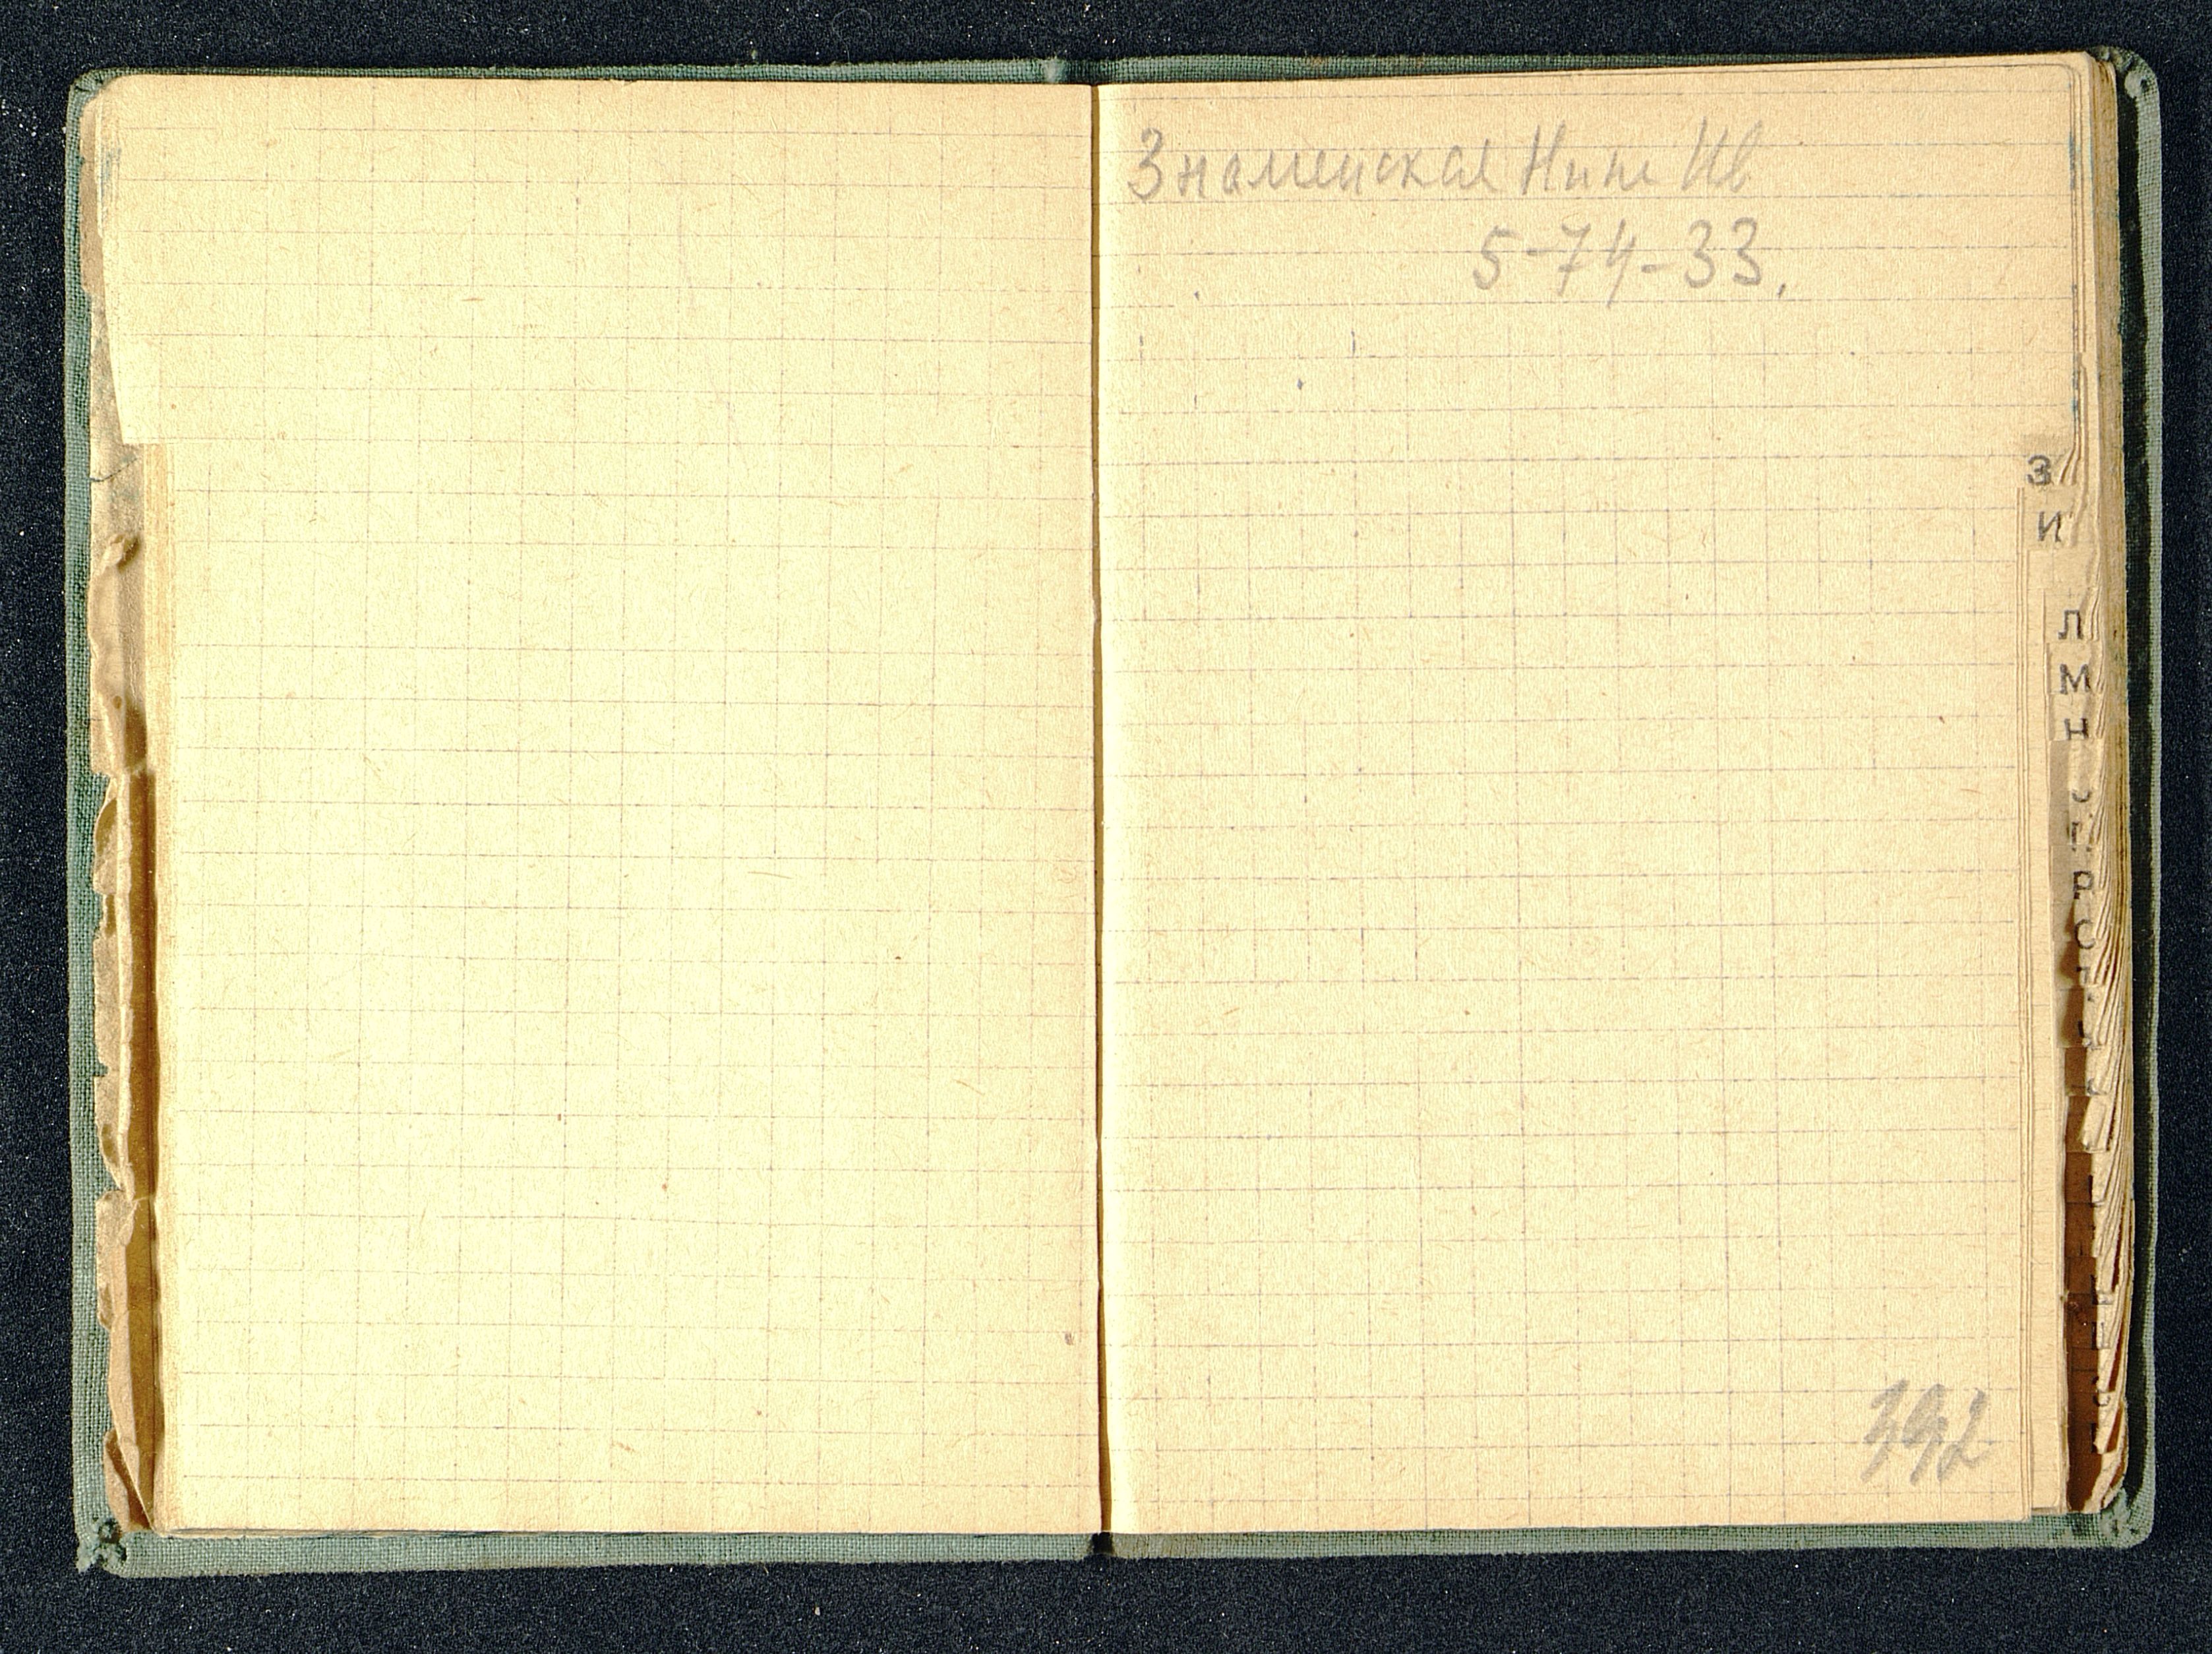 Знаменская Нина Ив
5-74-33.
З
И
Л
М
Н
Р
С
392